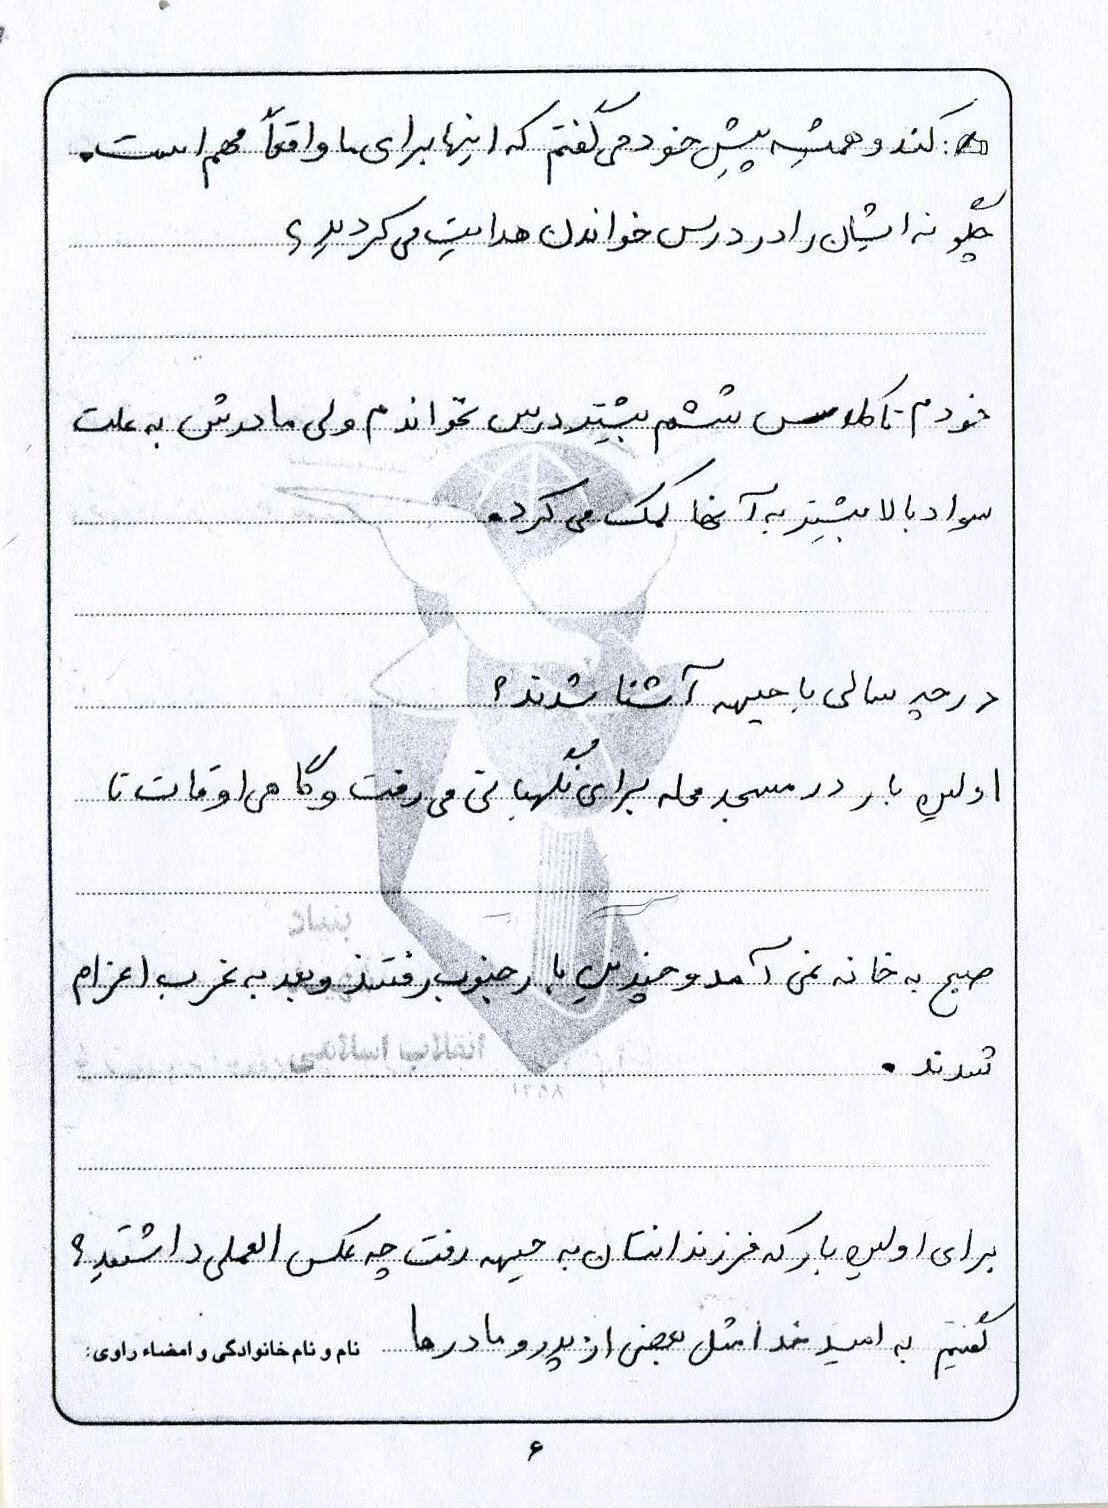 کند و همیشه پیش خود می گفتم که اینها برای ما واقعاً مهم است.
چگونه ایشان را در درس خواندن هدایت می کردید؟
خودم تا کلاس ششم بیشتر درس نخواندم ولی مادرش به علت
سواد بالا بیشتر به آنها کمک می کرد.
در چه سالی با جبهه آشنا شدند؟
اولین بار در مسجد محله برای نگهبانی می رفت و گاهی اوقات تا
بنیاد
صبح به خانه نمی آمد و چندین بار جنوب رفتند و بعد به غرب اعزام
انقلاب اسلامی
شدند.
برای اولین بار که فرزندانتان به جبهه رفت چه عکس العملی داشتید؟
گفتیم به امید خدا مثل بعضی از پدر و مادرها
نام و نام خانوادگی و امضاء راوی:
۶